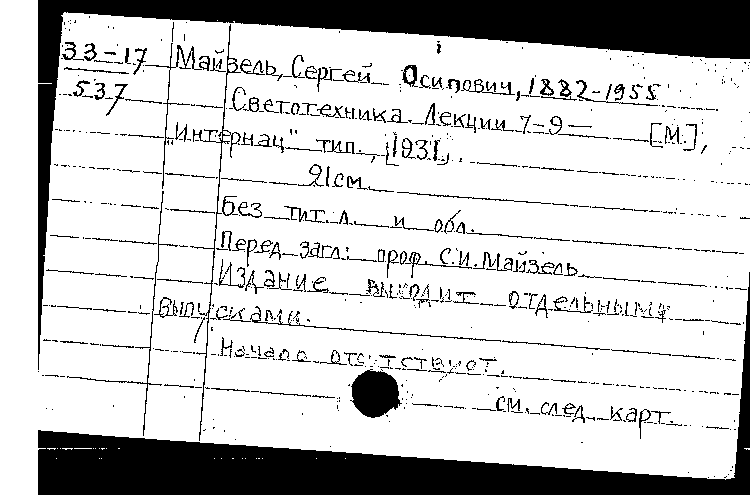 33-17 Майзель, Сергей Осипович, 1882-1955
537 Светотехника. Лекции 7-9— [М.],
„Интернац" тип., [1931].
21см.
без тит. л. и обл.
Перед загл: проф. С.И. Майзель.
Издание выходит отдельными
выпусками.
Начало отсутствует.
см. след. карт.